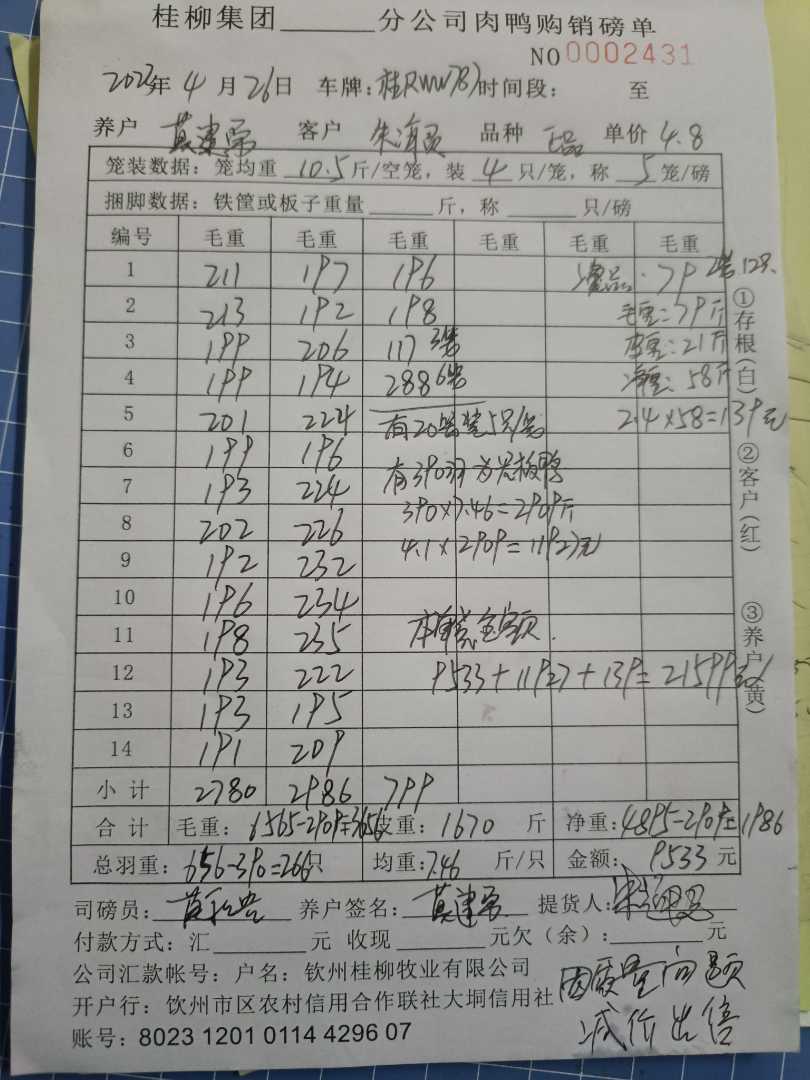 桂柳集团______分公司肉鸭购销磅单
NO 0002431
年 4 月 26日 车牌: 时间段: 至
养户 莫建荣 客户 品种 单价 4.8
笼装数据: 笼均重 10.5 斤/空笼, 装 4 只/笼, 称 5 笼/磅
捆脚数据: 铁筐或板子重量______斤, 称______只/磅
编号 毛重 毛重 毛重 毛重 毛重 毛重
1 211 197 196 79 2笼12只
2 213 192 198 毛重:79斤
3 199 206 117 3笼 21斤
4 199 194 288 6笼 净重:58斤
5 201 224 有20笼装5只/笼 2.4×58=139元
6 199 196
7 193 224 有390羽为 板鸭
8 202 226 390×7.46=2909斤
9 192 232 4.1×2909=11927元
10 196 234
11 198 235 金额.
12 193 222 9533+11927+139=21599元
13 193 195
14 191 209
小计 2780 2986 799
合计 毛重: 6565-2909=3656 皮重: 1670 斤 净重: 4895-2909=1986
总羽重: 656-390=266只 均重: 7.46 斤/只 金额: 9533 元
司磅员: 养户签名: 莫建荣 提货人:
付款方式: 汇______元 收现______元欠(余):______元
公司汇款帐号: 户名: 钦州桂柳牧业有限公司
开户行: 钦州市区农村信用合作联社大垌信用社
账号: 8023 1201 0114 4296 07
因质量问题
减价出售
①存根(白) ②客户(红) ③养户(黄)